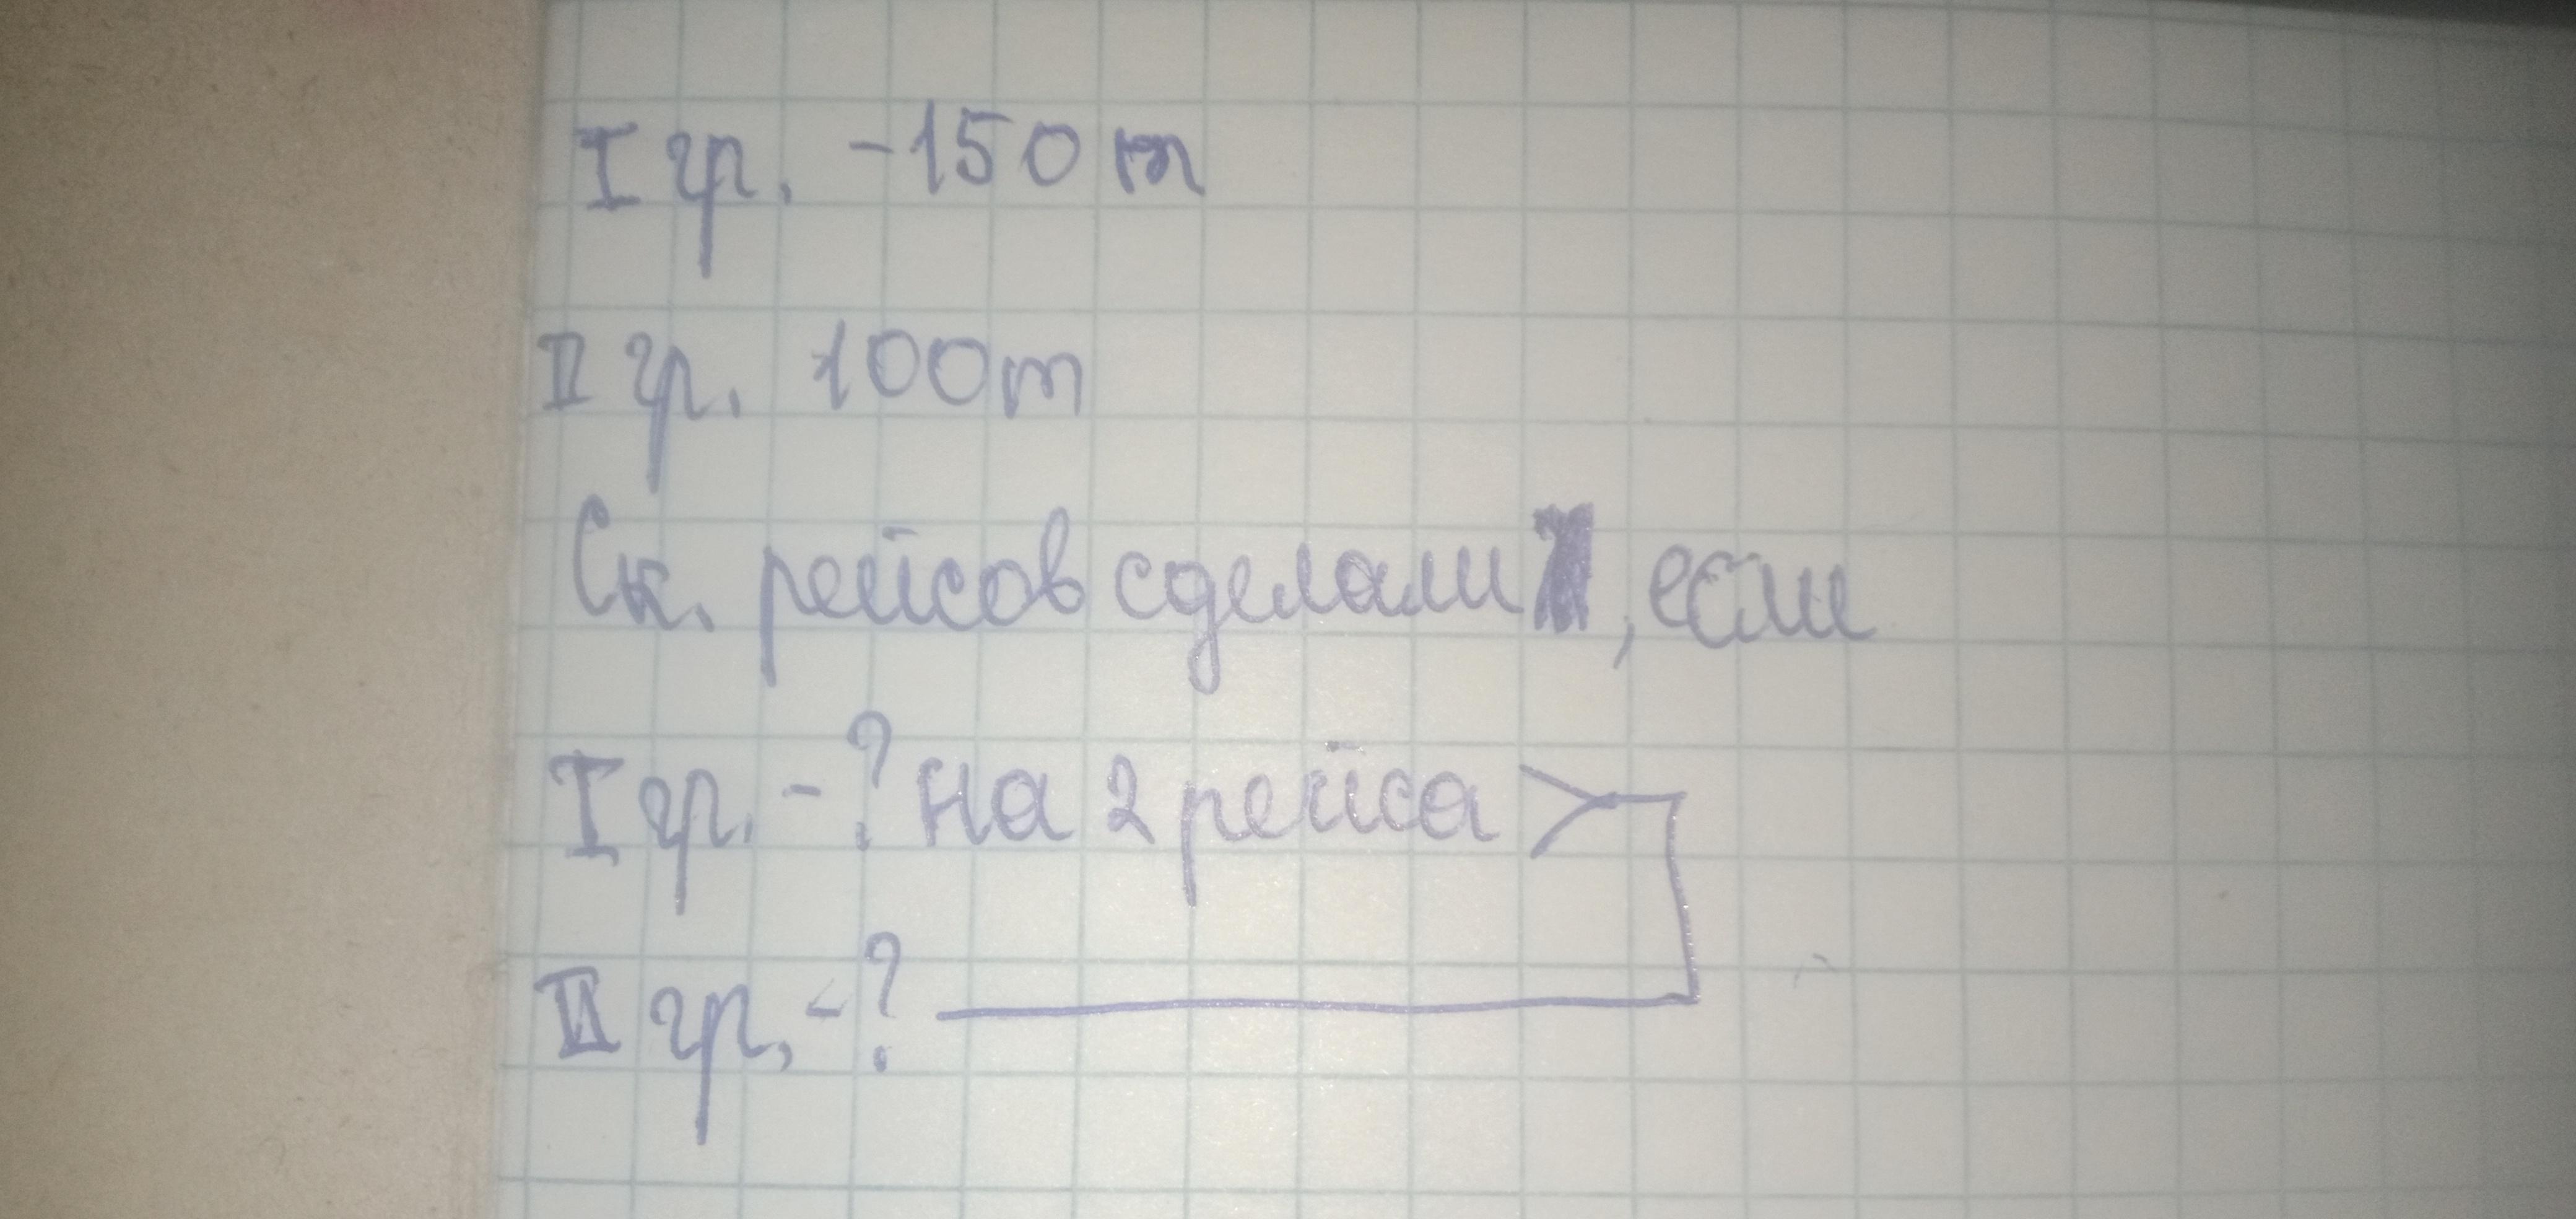 I гр. -150 т
II гр. 100т
Ск. рейсов сделали, если
I гр. - ? на 2 рейса >
II гр, - ?